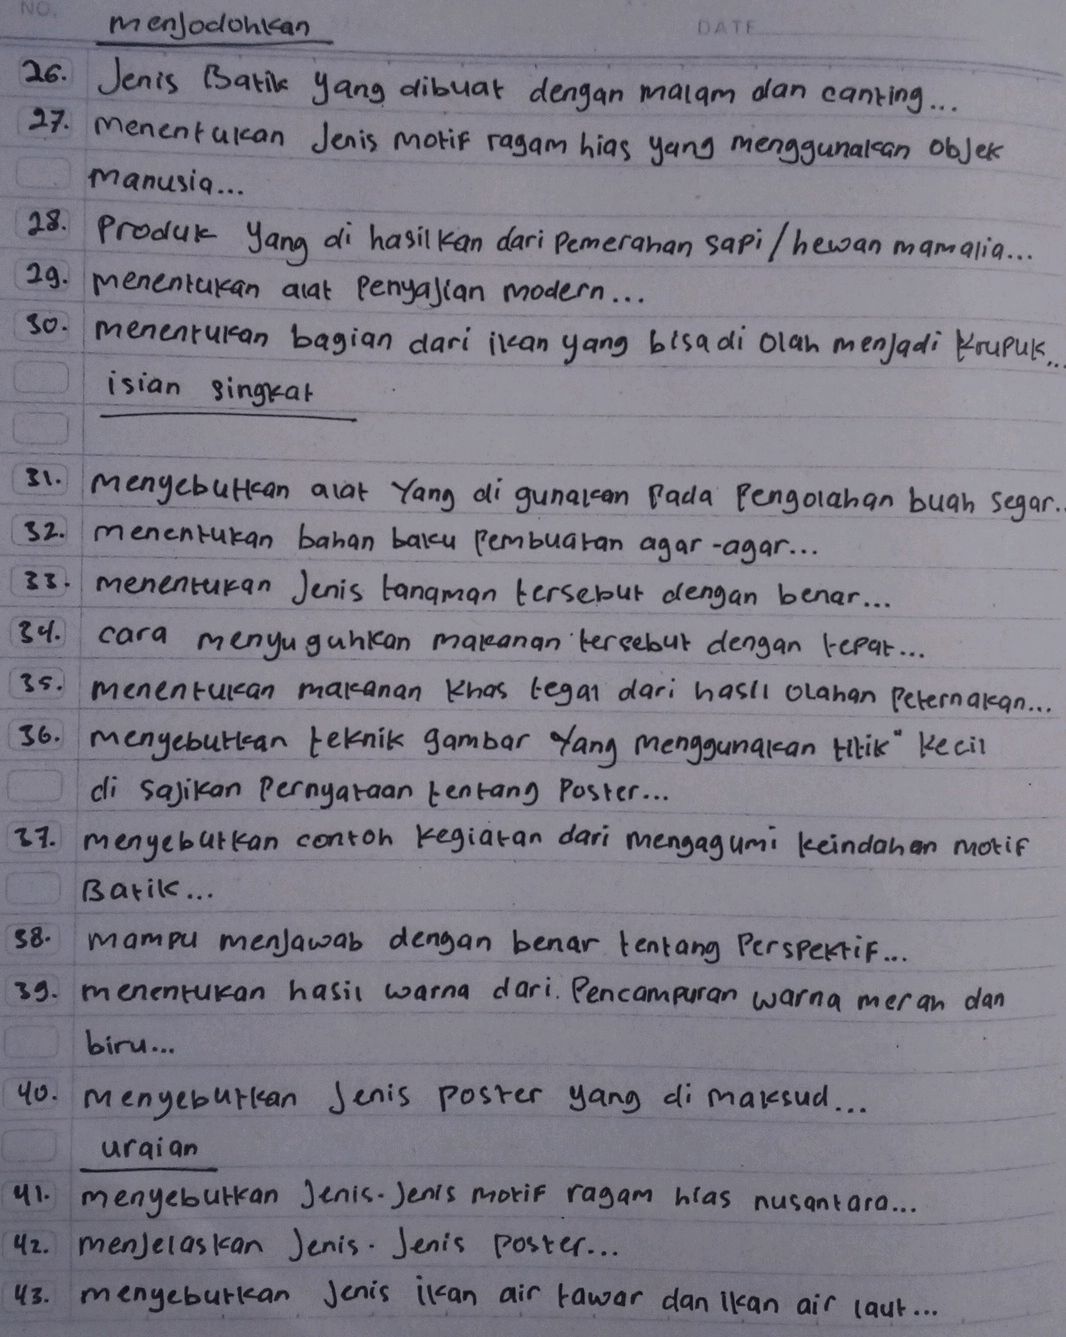 NO.
DATE
menjodohkan
26. Jenis Batik yang dibuat dengan malam dan canting...
27. menentukan Jenis motif ragam hias yang menggunakan objek
manusia...
28. Produk yang di hasilkan dari Pemerahan sapi/hewan mamalia...
29. menentukan alat Penyajian modern...
30. menentukan bagian dari ikan yang bisa di olah menjadi krupuk...
isian singkat
31. menyebutkan alat Yang di gunakan Pada Pengolahan buah segar..
32. menentukan bahan baku Pembuatan agar-agar...
33. menentukan Jenis tanaman tersebut dengan benar...
34. cara menyuguhkan makanan tersebut dengan tepat...
35. menentukan makanan khas tegal dari hasil olahan Peternakan...
36. menyebutkan teknik gambar Yang menggunakan titik" kecil
di sajikan Pernyataan tentang Poster...
37. menyebutkan contoh kegiatan dari mengagumi keindahan motif
Batik...
38. mampu menjawab dengan benar tentang Perspektif...
39. menentukan hasil warna dari. Pencampuran warna merah dan
biru...
40. menyebutkan Jenis poster yang di maksud...
uraian
41. menyebutkan Jenis-Jenis motif ragam hias nusantara...
42. menjelaskan Jenis-Jenis poster...
43. menyebutkan Jenis ikan air tawar dan ikan air laut...